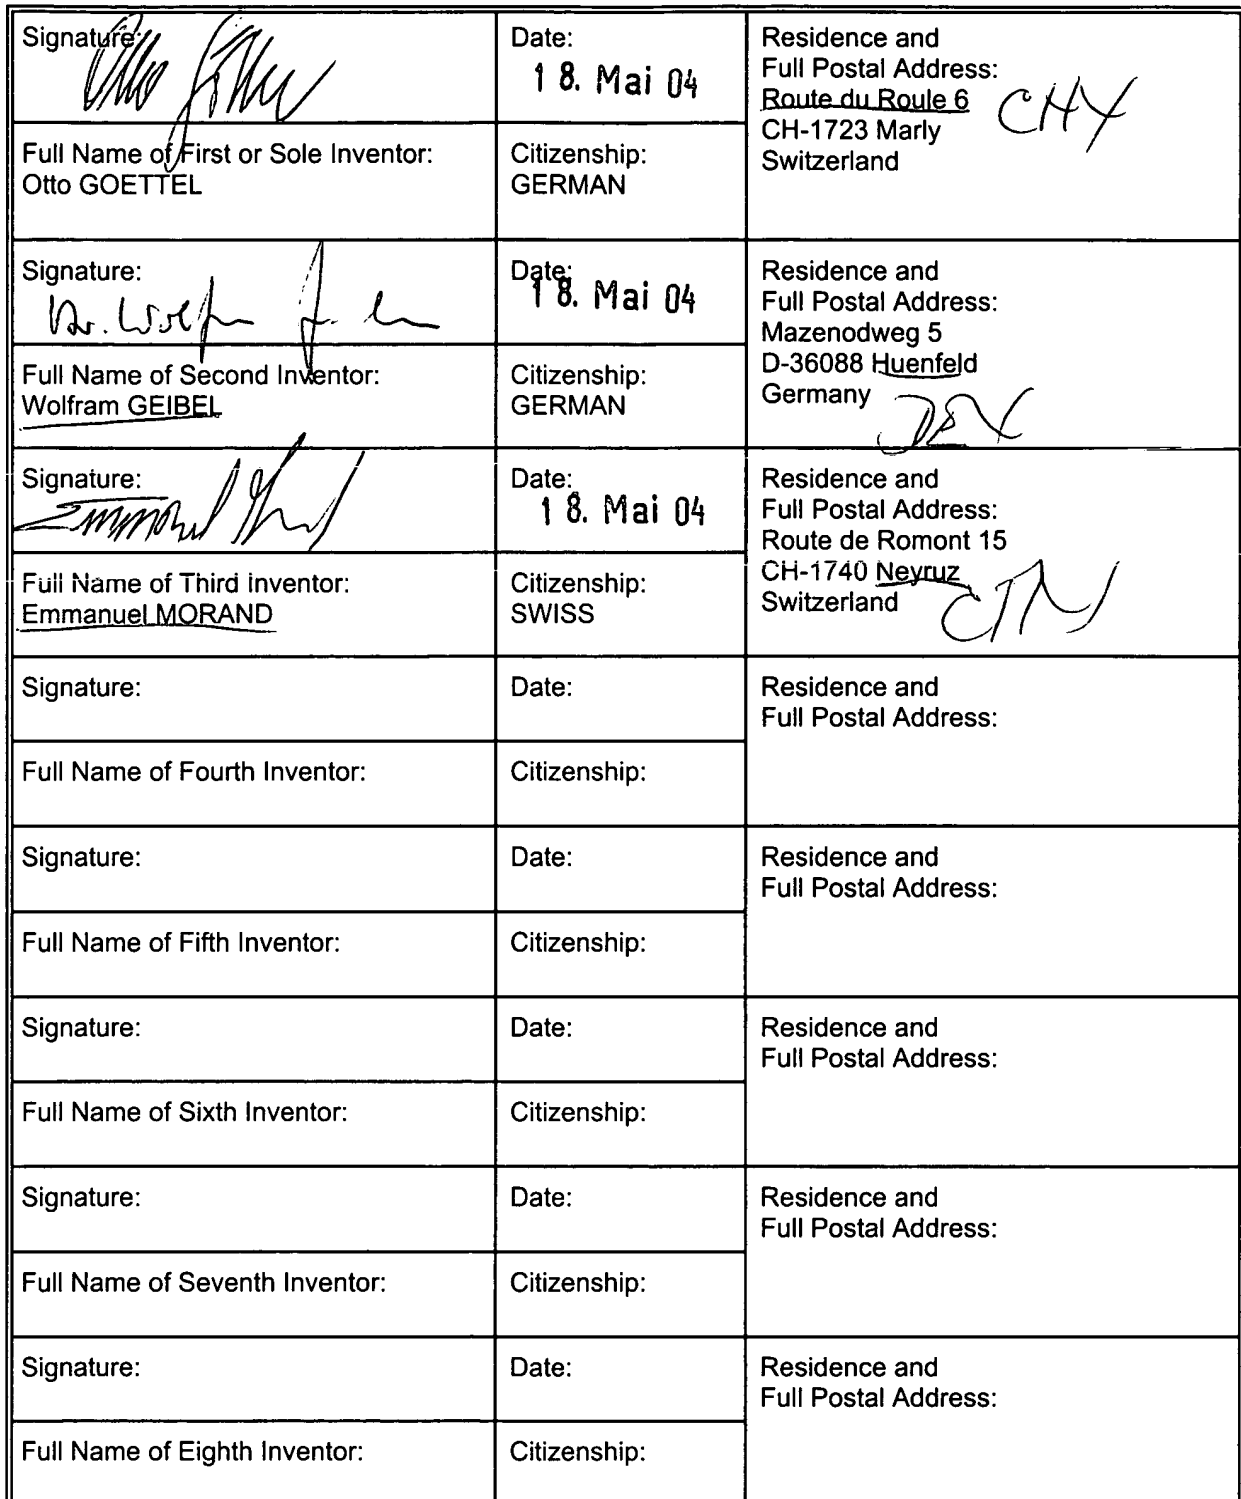 Signature:
Date:
18. Mai 04
Residence and
Full Postal Address:
Route du Roule 6
CH-1723 Marly
Switzerland
CHX
Full Name of First or Sole Inventor:
Otto GOETTEL
Citizenship:
GERMAN
Signature:
Dr. Wolfram
Date:
18. Mai 04
Residence and
Full Postal Address:
Mazenodweg 5
D-36088 Huenfeld
Germany
DEX
Full Name of Second Inventor:
Wolfram GEIBEL
Citizenship:
GERMAN
Signature:
Emmanuel
Date:
18. Mai 04
Residence and
Full Postal Address:
Route de Romont 15
CH-1740 Neyruz
Switzerland
Full Name of Third Inventor:
Emmanuel MORAND
Citizenship:
SWISS
Signature:
Date:
Residence and
Full Postal Address:
Full Name of Fourth Inventor:
Citizenship:
Signature:
Date:
Residence and
Full Postal Address:
Full Name of Fifth Inventor:
Citizenship:
Signature:
Date:
Residence and
Full Postal Address:
Full Name of Sixth Inventor:
Citizenship:
Signature:
Date:
Residence and
Full Postal Address:
Full Name of Seventh Inventor:
Citizenship:
Signature:
Date:
Residence and
Full Postal Address:
Full Name of Eighth Inventor:
Citizenship: